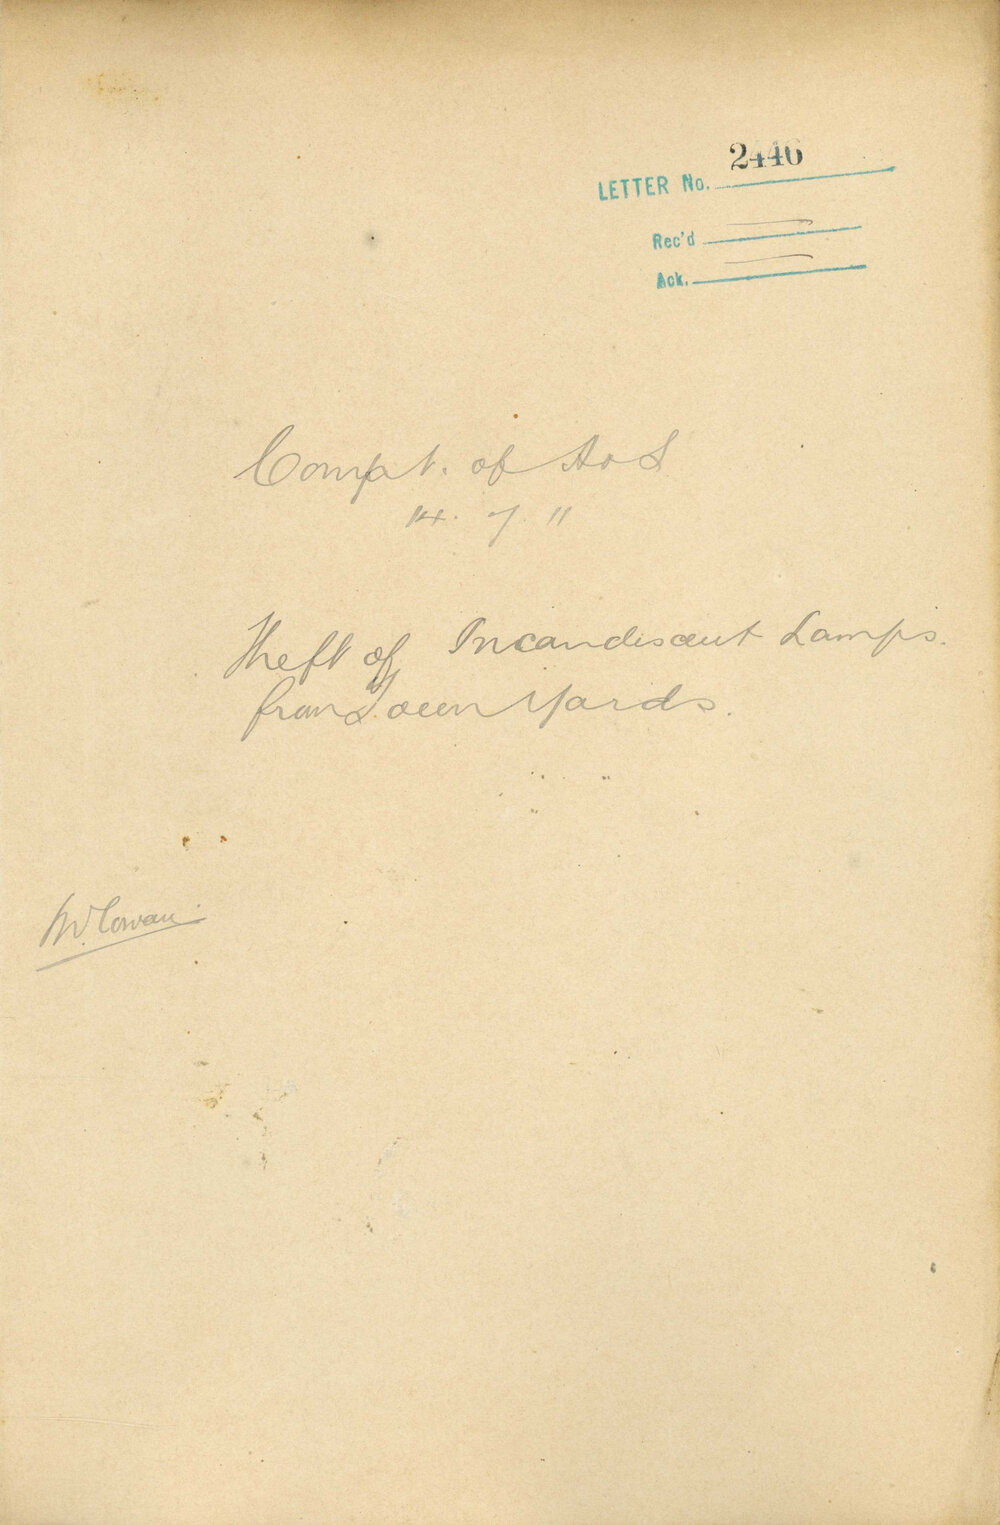 2446
LETTER No.
Rec'd
Ack.
Compt. of A & S
14. 7. 11
Theft of Incandiscent Lamps.
from Town Yards.
Mr. Cowan